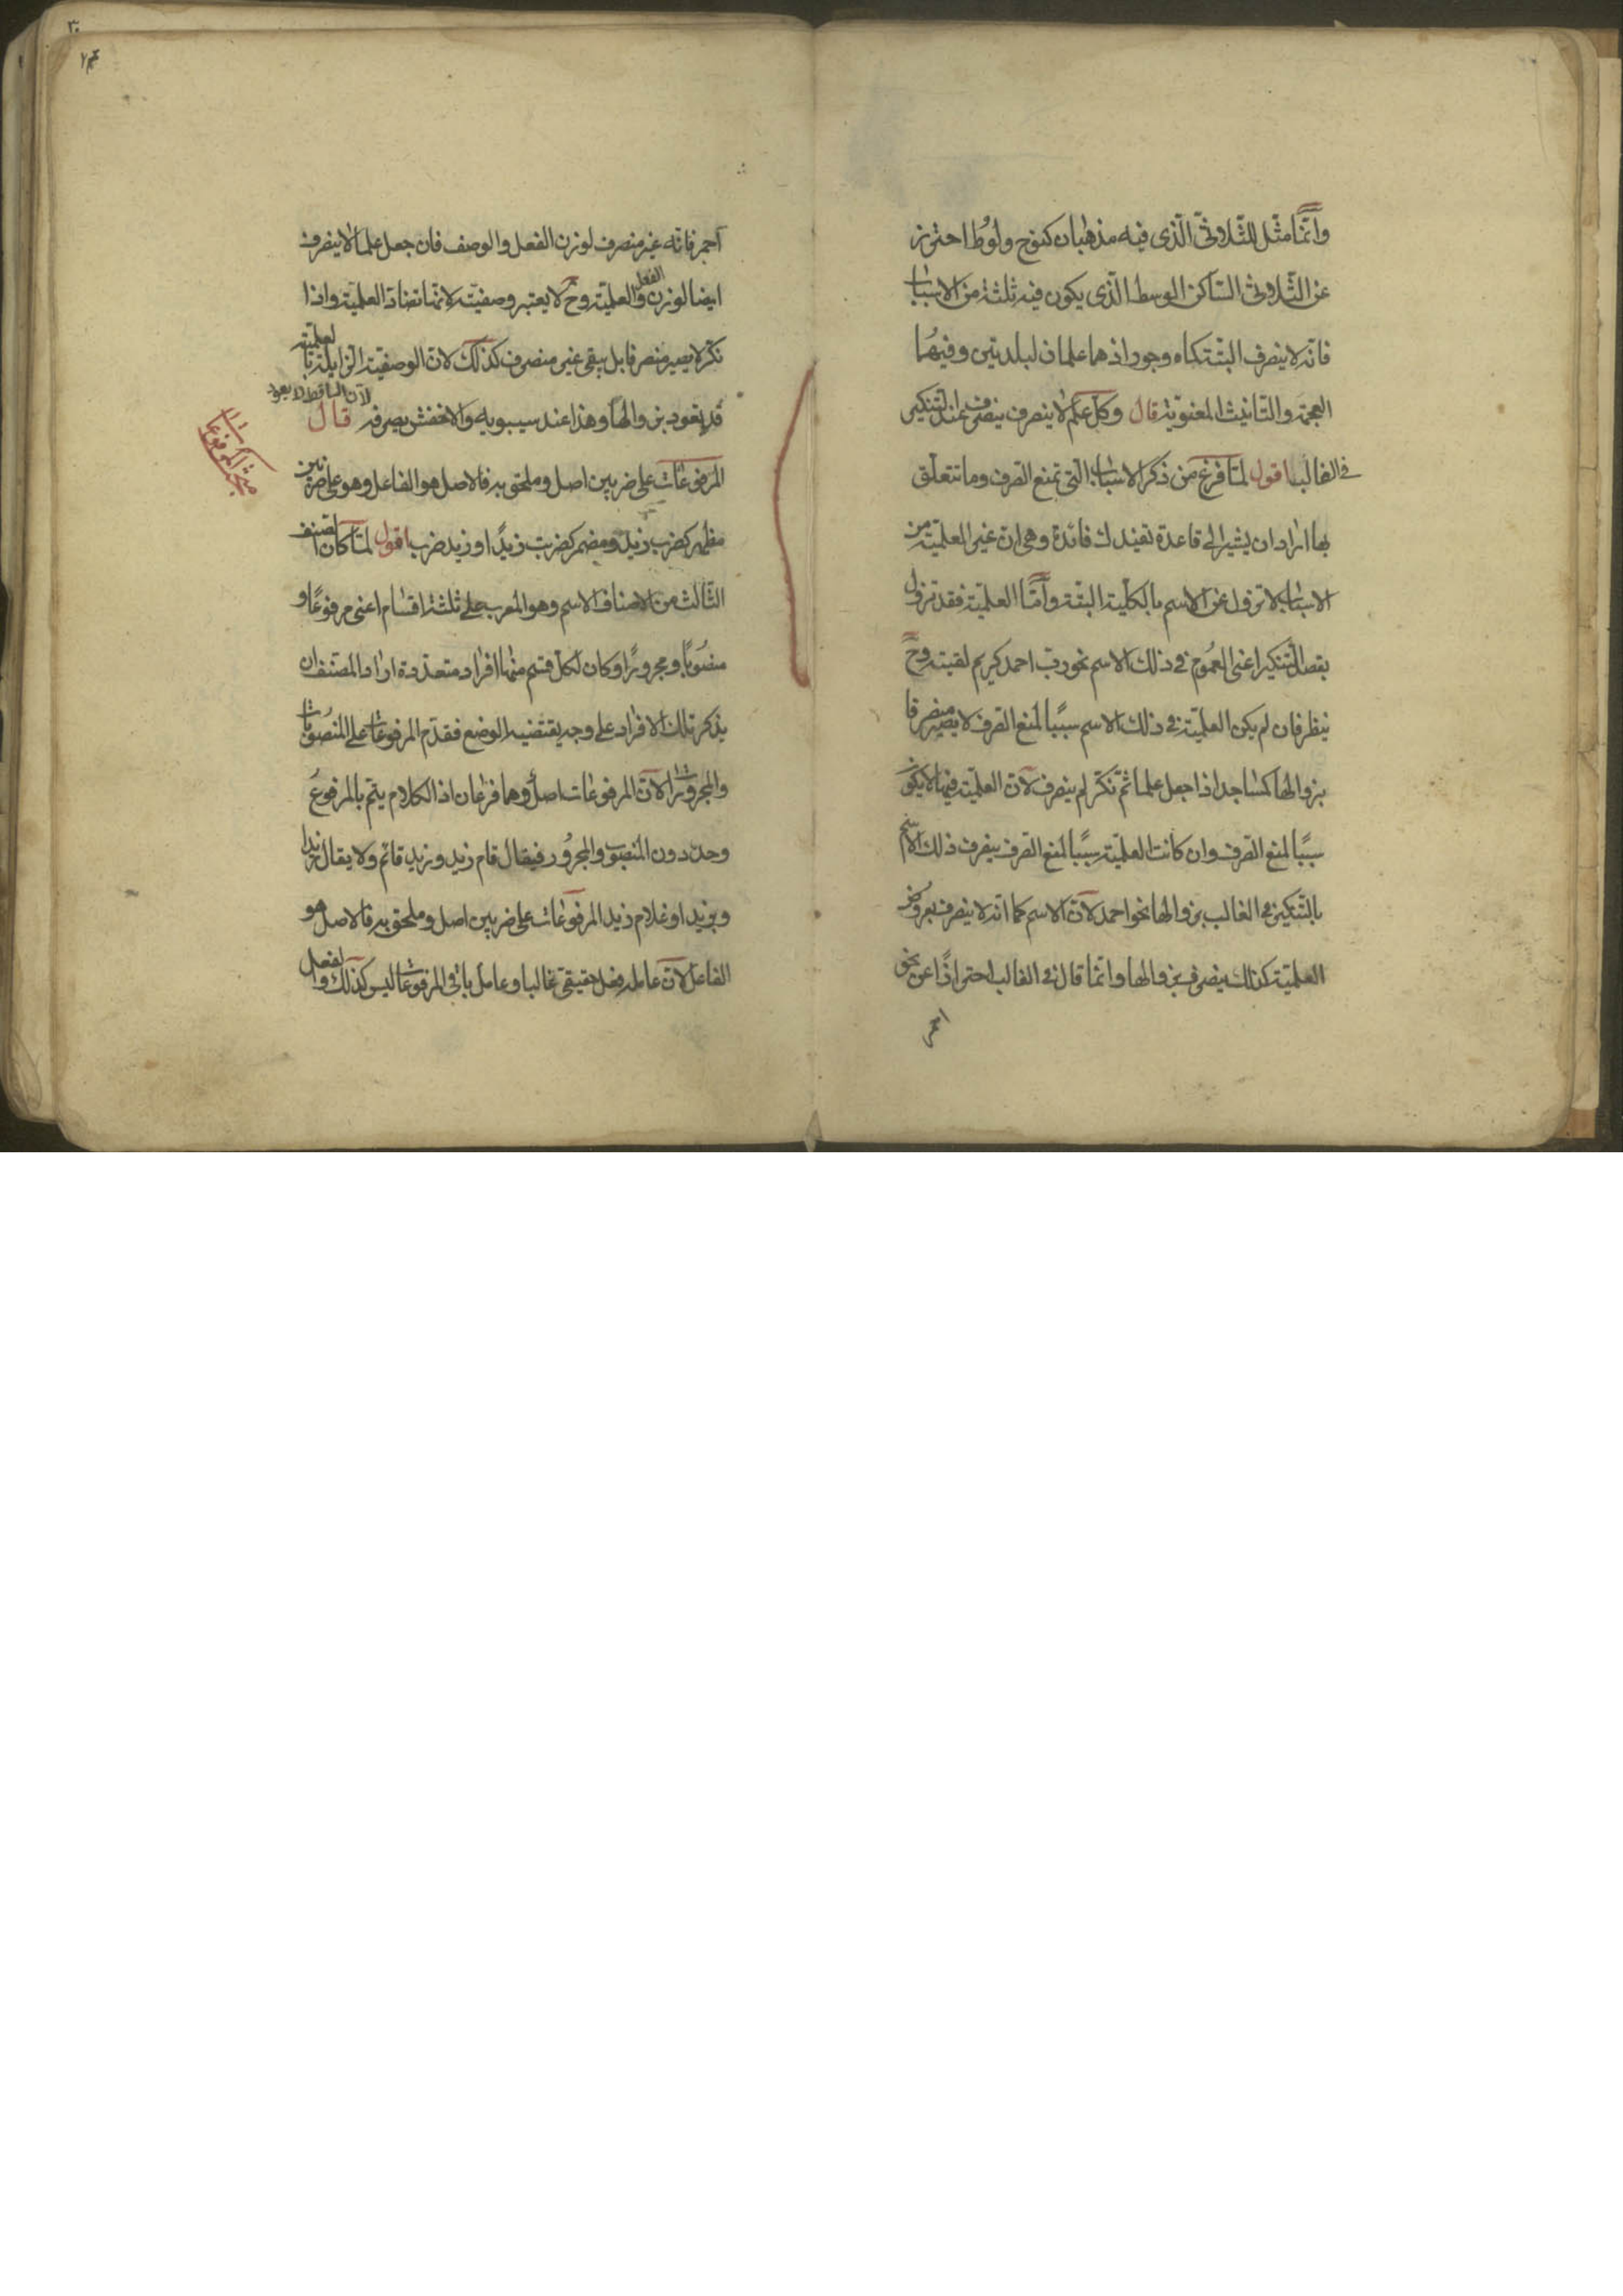 وانّما مثّل الثّلاثىّ الّذى فيه مذهبان كنوح ولوُط احترز
عن الثّلاثىّ السّاكن الوسط الّذى يكون فيه ثلثة من الاسباب
فانّه لا ينصرف البتّة كماه وجور اذ هما علمان لبلدتين وفيهُما
العجمة والتّانيث المعنويّة قال وكلّ علم لا ينصرف ينصرف عند التنكير
فى الغالب اقول لمّا فرغ من ذكر الاسباب الّتى تمنع الصّرف وما تتعلّق
بها اراد ان يشير الى قاعدة تفيدك فائدة وهى انّ غير العلميّة من
الاسباب لا تزول عن الاسم بالكلّية البتّة وامّا العلميّة فقد تزول
بقصد التّنكير اعنى العمُوم فى ذلك الاسم نحو ربّ احمد كريم لقيته وح
ينظر فان لم يكن العلميّة فى ذلك الاسم سببًا لمنع الصّرف لا يصير منصرفا
بزوالها كمساجد اذا جعل علما ثمّ نكّر لم ينصرف لانّ العلميّة فيها لا يكون
سببًا لمنع الصّرف وان كانت العلميّة سببًا لمنع الصّرف ينصرف ذلك الاسم
بالتّنكير فى الغالب بزوالها نحو احمد لانّ الاسم كما انّه لا ينصرف بعروض
العلميّة كذلك ينصرف بزوالها وانّما قال فى الغالب احترازًا عن نحو
احمر
احمر فانّه غير منصرف لوزن الفعل والوصف فان جعل علما لا ينصرف
ايضا لوزن الفعل والعلميّة وح لا يعتبر وصفيّته لانّها تضادّ العلميّة واذا
نكّر لا يصير منصرفا بل يبقى غير منصرف كذلك لانّ الوصفيّة الزّايلة بالعلميّة
قد يعود بزوالها وهذا عند سيبويه والاخفش يصرفه قال
لانّ السّاقط لا يعود
المرفوعات على ضربين اصل وملحق به فالاصل هو الفاعل وهو على ضربين
مبحث المرفوعات
مظهر كضرب زيد ومضمر كضربت زيدًا وزيد ضرب اقول لمّا كان الصنف
الثّالث من الاصناف الاسم وهو المعرب على ثلثة اقسام اعنى مرفوعًا و
منصُوبًا ومجرورًا وكان لكلّ قسم منها افراد متعدّدة اراد المصنّف ان
يذكر تلك الافراد على وجه يقتضيه الوضع فقدّم المرفوعات على المنصُوبات
والمجرورات لانّ المرفوعات اصل وهما فرعان اذ الكلام يتمّ بالمرفوعُ
وحده دون المنصوب والمجرُور فيقال قام زيد وزيد قائم ولا يقال زيدا
وبزيد او غلام زيد المرفوعات على ضربين اصل وملحق به فالاصل هو
الفاعل لانّ عامله فعل حقيقى غالبا وعامل باقى المرفوعات ليس كذلك والفعل